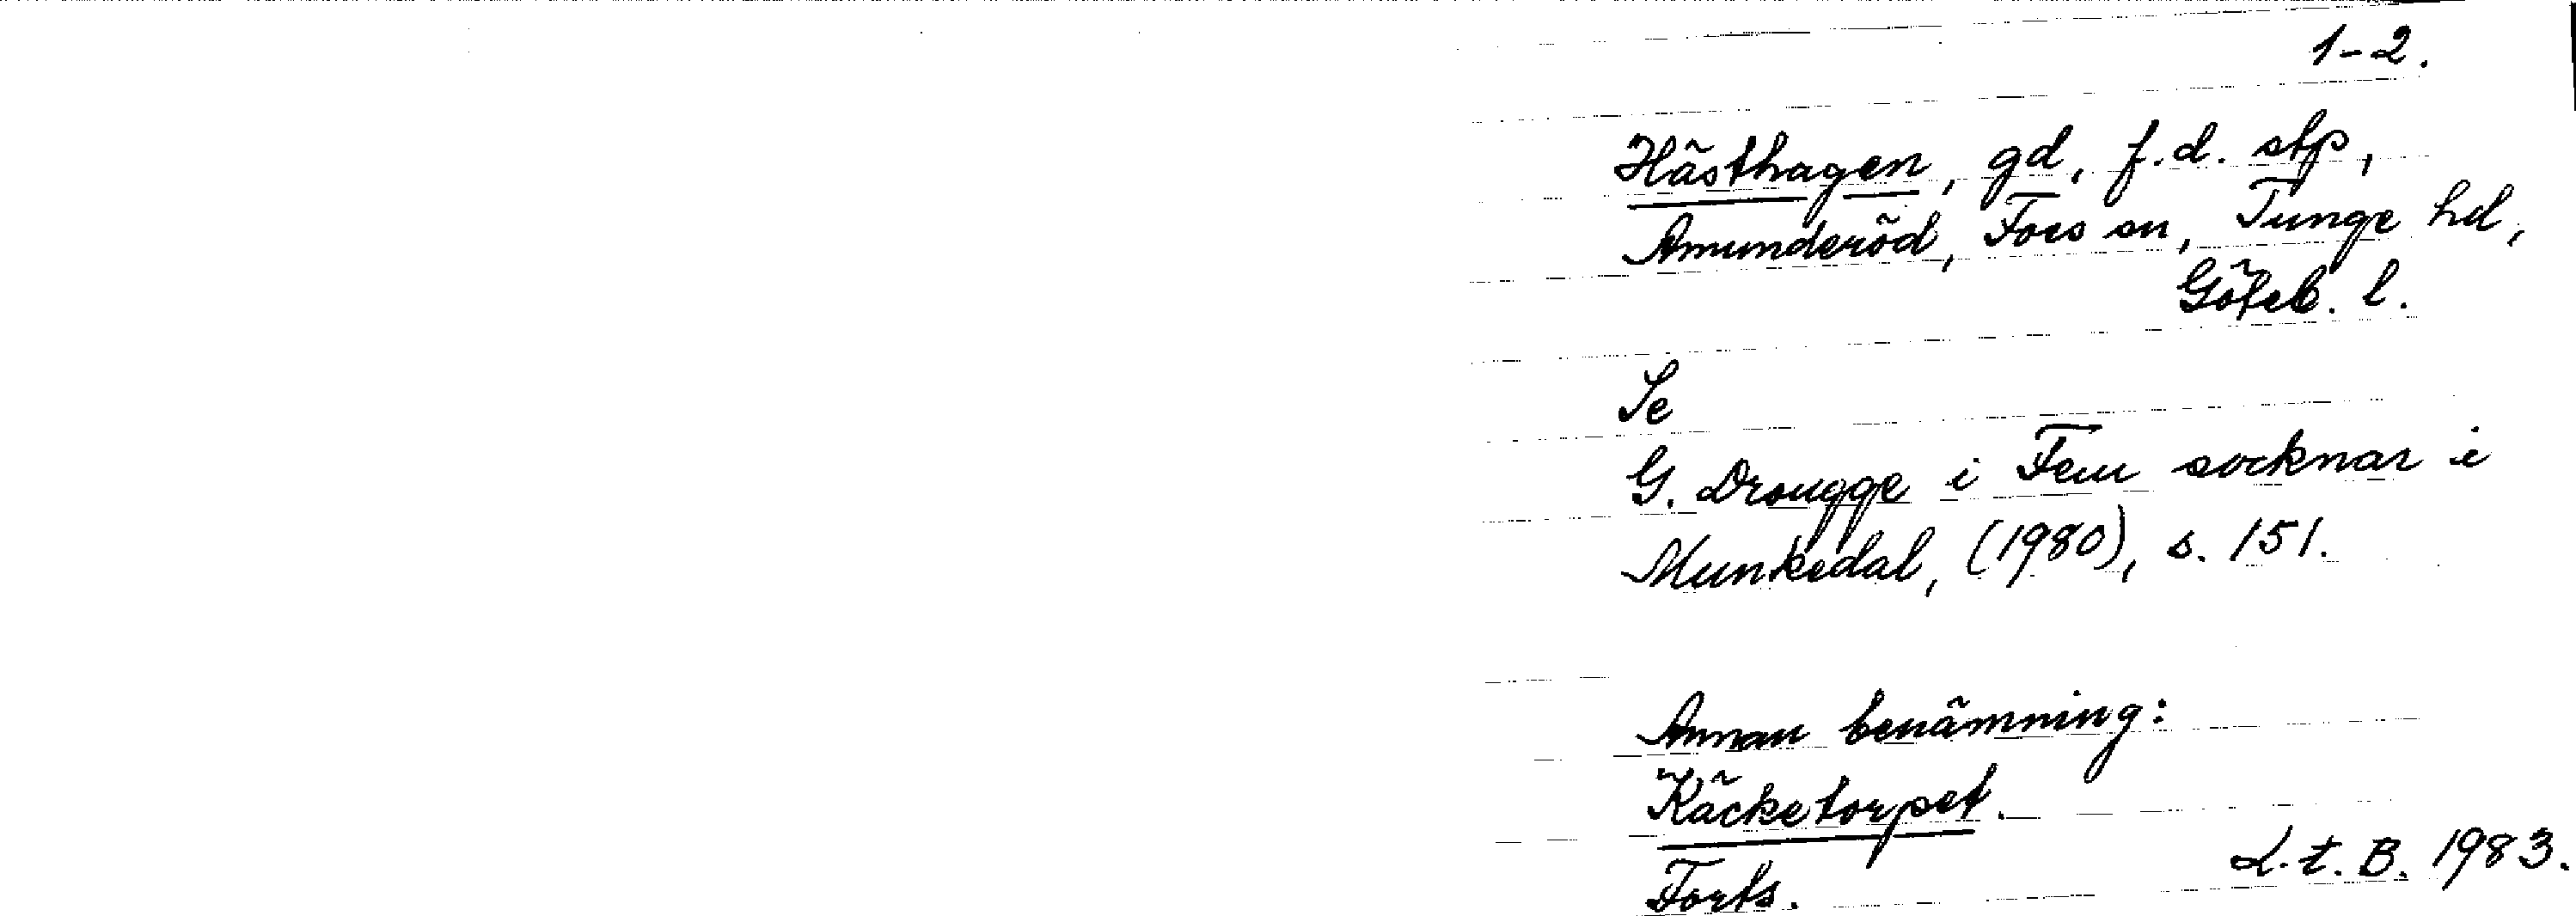 1-2.
Hästhagen, gd, f.d. stp,
Amunderöd, Foss sn, Tunge hd,
Göteb. l.
Se
G. Drougge i Fem socknar i
Munkedal, (1980), s. 151.
Annan benämning:
Käcketorpet.
Forts.
L.t. B. 1983.